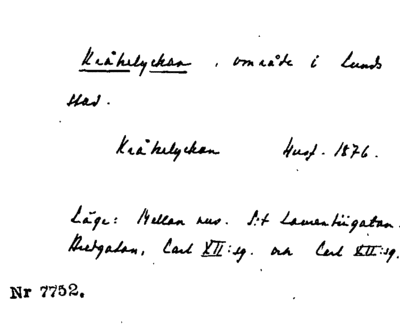 Kråkelyckan, område i Lunds
stad.
Kråkelyckan Husf. 1876.
Läge: Mellan nuv. S:t Laurentiigatan.
Bredgatan, Carl XII:sg. och Carl XII:sg.
Nr 7752.